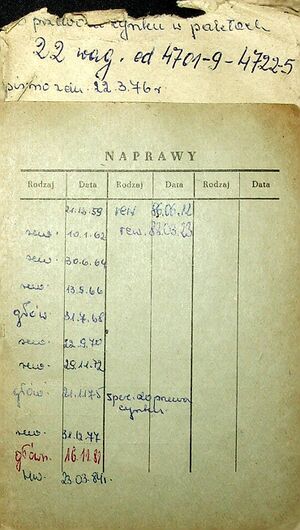 przewozu cynku w paletach
22 wag. od 4701-9 - 4722-5
pismo z dn. 22.3.76 r
NAPRAWY
Rodzaj Data Rodzaj Data Rodzaj Data
21.12.59 rew 86.06.12
rew. 10.1.62 rew. 88.03.23
rew. 30.6.64
rew. 13.9.66
głów. 31.7.68
rew. 22.9.70
rew. 29.11.72
głów. 21.11.75 spec. do przewozu
cynku
rew. 31.12.77
główn. 16.11.81
rew. 23.03.84r.